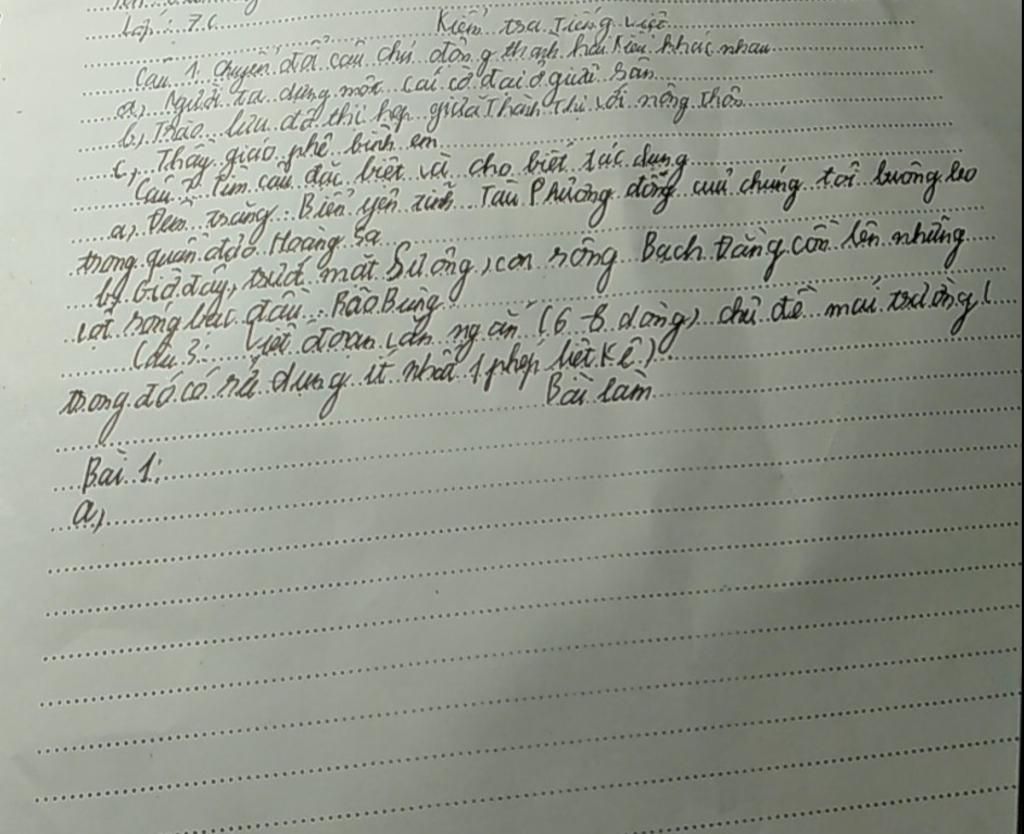 Lớp: 7C
Kiểm tra Tiếng Việt
Câu 1. Chuyển đổi câu chủ động thành hai kiểu khác nhau
a, Người ta dựng một cái cờ đại ở giữa sân
b, Trào lưu đô thị hẹp giữa Thành Thị với nông thôn
c, Thầy giáo phê bình em
Câu 2 Tìm câu đặc biệt và cho biết tác dụng
a, Đêm trăng. Biển yên tĩnh. Tàu Phương đông của chúng tôi buông leo
trong quần đảo Hoàng Sa
b, Giờ đây, trước mắt Sương, con sông Bạch Đằng cồn lên những
lớt sóng bạc đầu. Bão Bùng
Câu 3: Viết đoạn văn ngắn (6-8 dòng) chủ đề mái trường (
trong đó có sử dụng ít nhất 1 phép liệt kê)
Bài làm
Bài 1:
a,